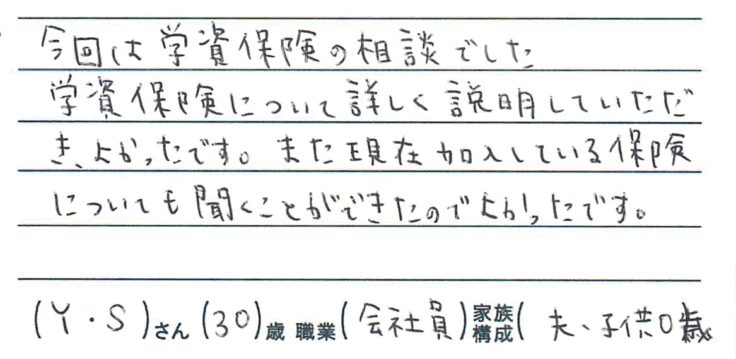 今回は学資保険の相談でした
学資保険について詳しく説明していただ
き、よかったです。また現在加入している保険
についても聞くことができたのでよかったです。
(Y・S)さん(30)歳 職業(会社員)家族構成(夫、子供0歳